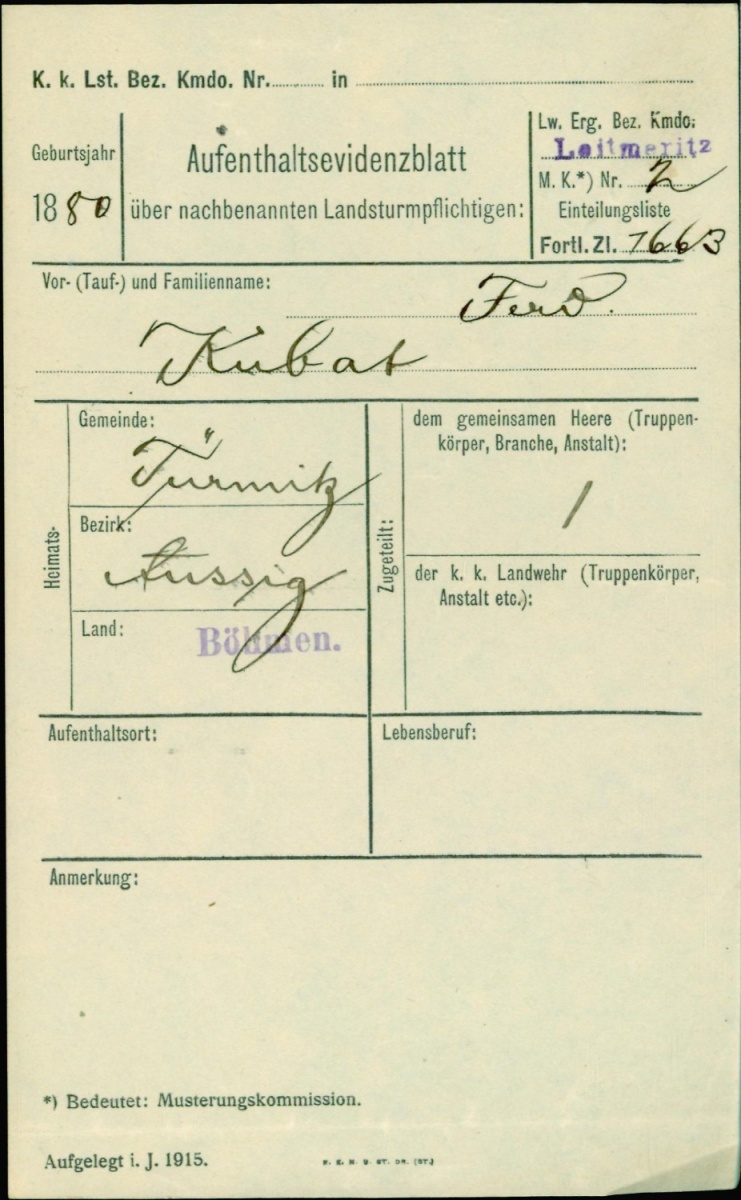 K. k. Lst. Bez. Kmdo. Nr. in
Geburtsjahr
1880
Aufenthaltsevidenzblatt
über nachbenannten Landsturmpflichtigen:
Lw. Erg. Bez. Kmdo:
Leitmeritz
M. K.*) Nr. 2
Einteilungsliste
Fortl. Zl. 1663
Vor- (Tauf-) und Familienname:
Ferd.
Kubat
Heimats-
Gemeinde:
Türmitz
Bezirk:
Aussig
Land:
Böhmen.
Zugeteilt:
dem gemeinsamen Heere (Truppen-
körper, Branche, Anstalt):
/
der k. k. Landwehr (Truppenkörper,
Anstalt etc.):
Aufenthaltsort:
Lebensberuf:
Anmerkung:
*) Bedeutet: Musterungskommission.
Aufgelegt i. J. 1915.